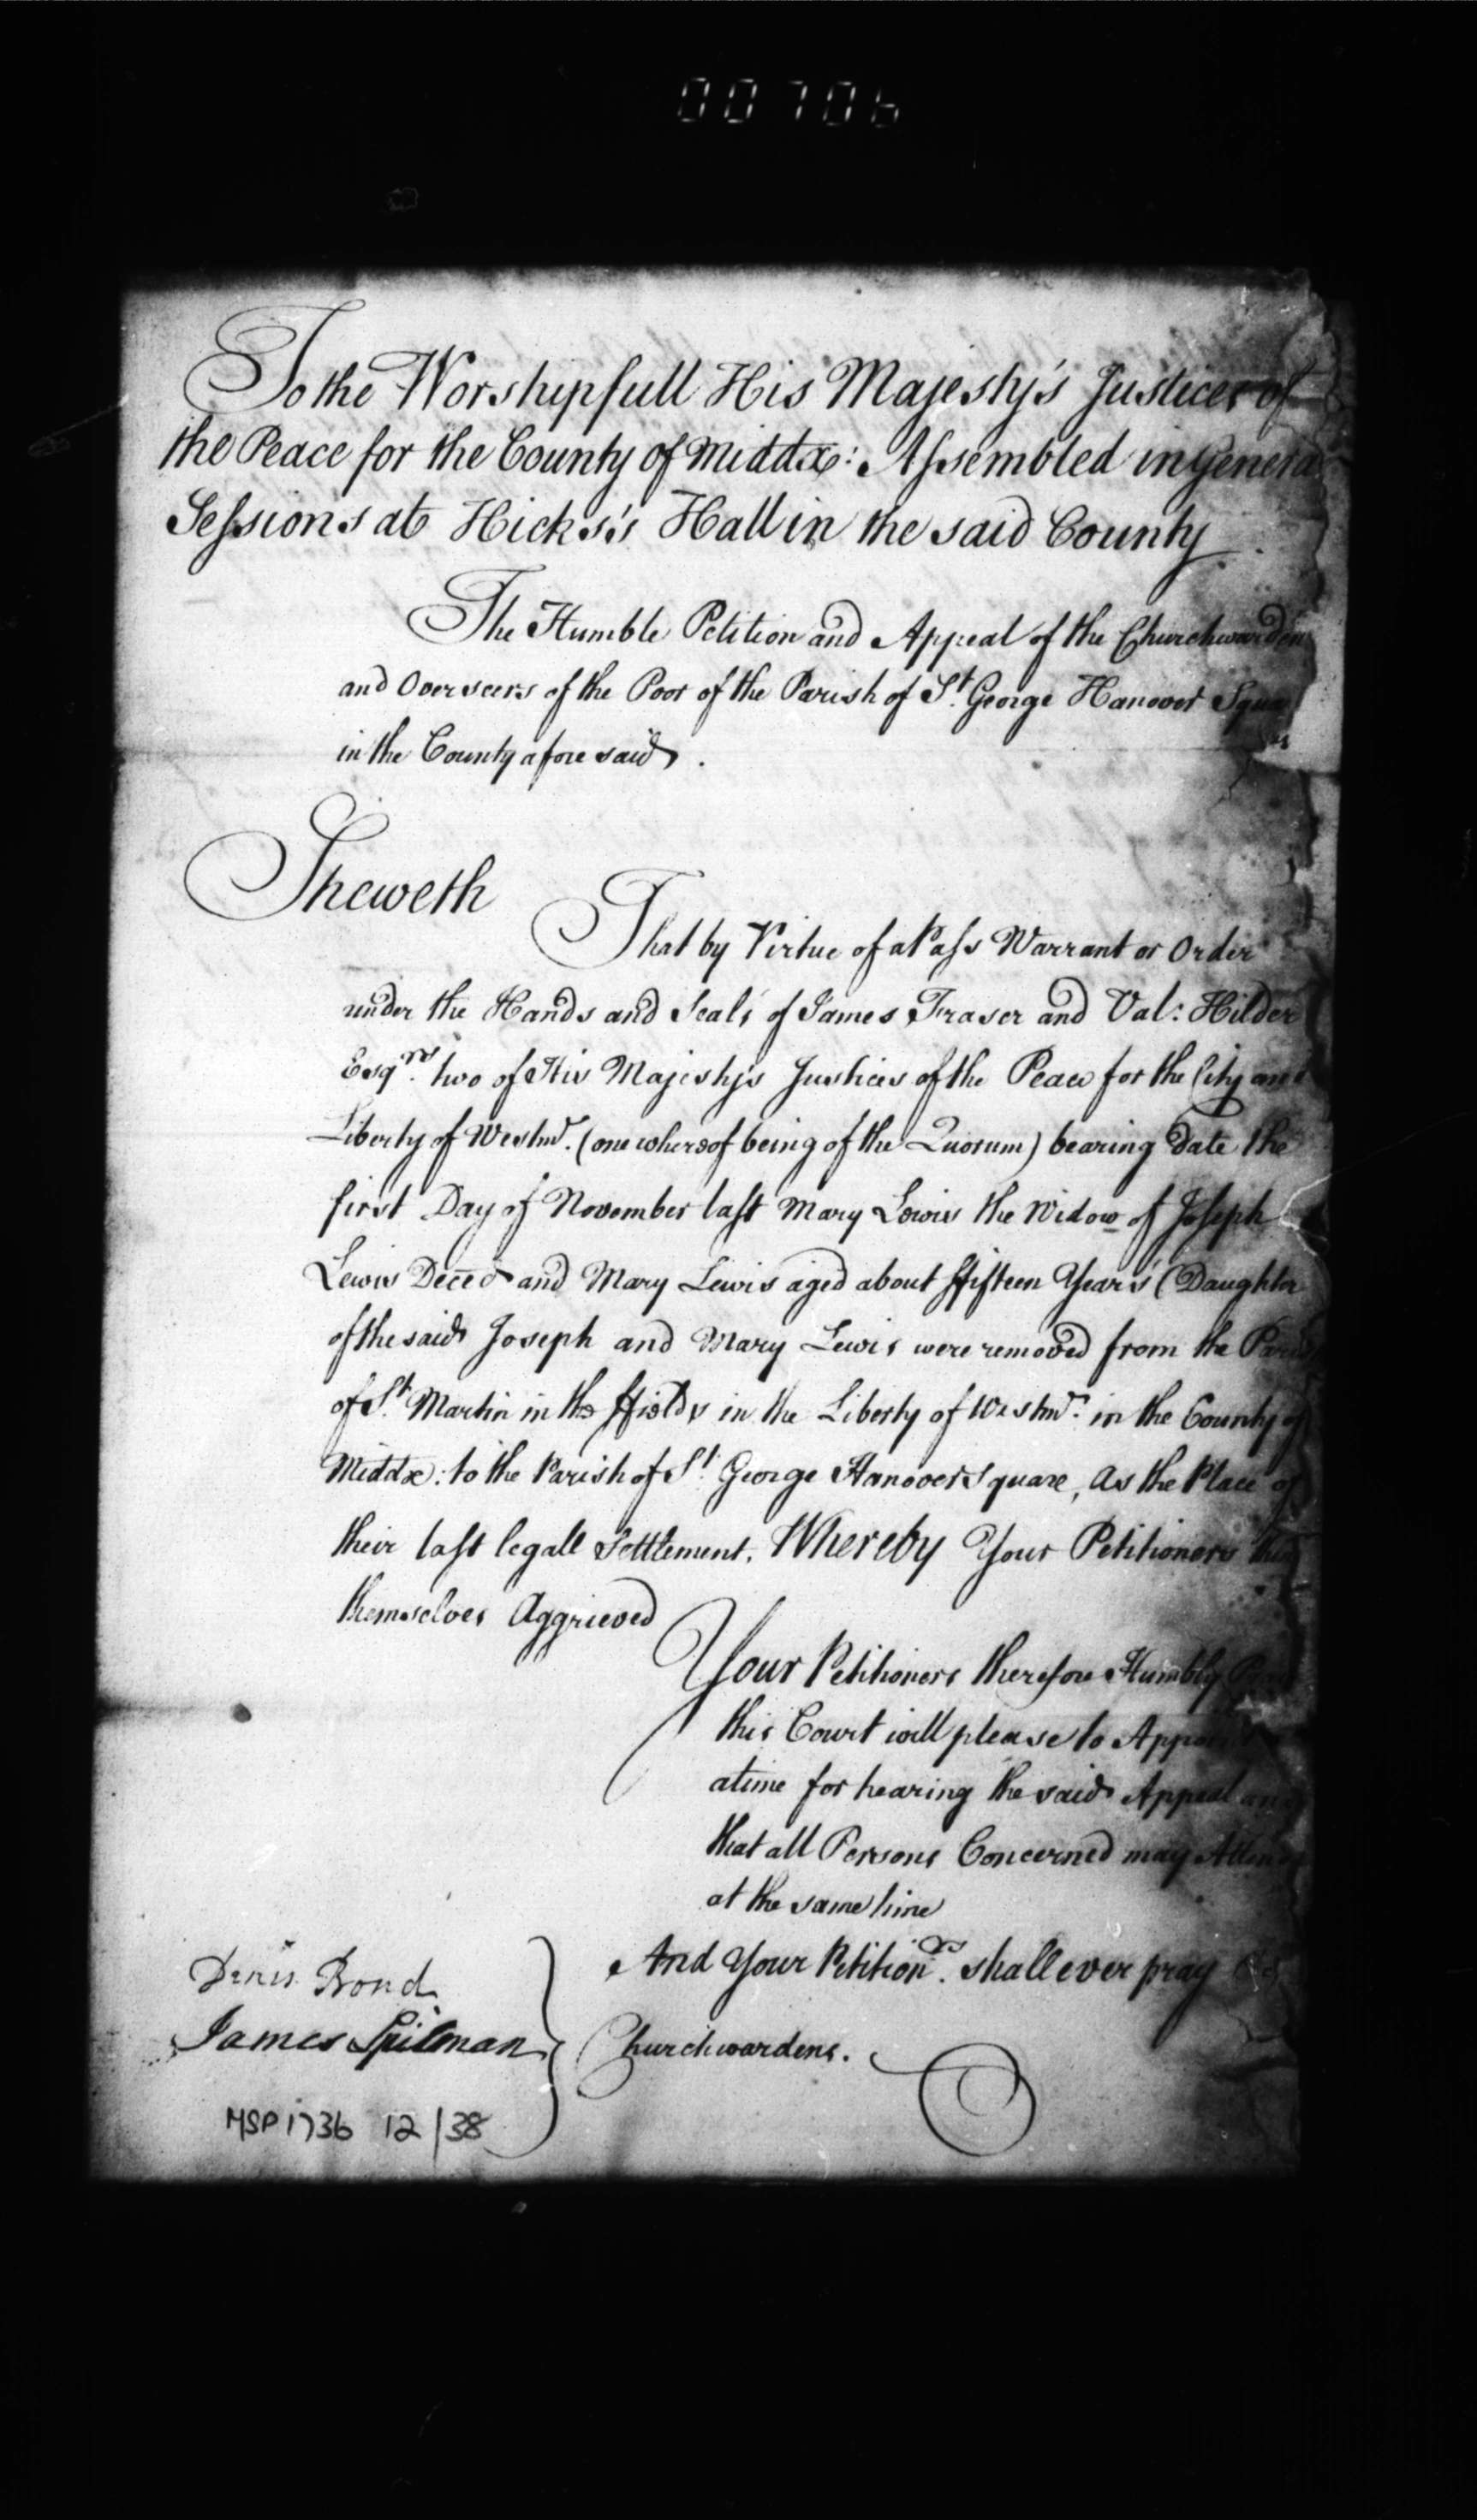 00706
To the Worshipfull His Majesty's Justices of
the Peace for the County of Middx: Assembled in Genera
Sessions at Hicks's Hall in the said County
The Humble Petition and Appeal of the Churchwarden
and Overseers of the Poor of the Parish of St. George Hanover Squa
in the County aforesaid.
Sheweth
That by Virtue of a Pass Warrant or Order
under the Hands and Seals of James Fraser and Val: Hilder
Esqrs. two of His Majesty's Justices of the Peace for the City and
Liberty of Westmr. (one whereof being of the Quorum) bearing Date the
first Day of November last Mary Lewis the Widow of Joseph
Lewis Deced and Mary Lewis aged about ffifteen Years (Daughter
of the said Joseph and Mary Lewis were removed from the Paris
of St. Martin in the ffields in the Liberty of Westmr. in the County of
Middx: to the Parish of St. George Hanover Square, as the Place of
their last legall Settlement. Whereby Your Petitioners thin
themselves Aggrieved
Your Petitioners therefore Humbly Pray
this Court will please to Appoint
a time for hearing the said Appeal and
that all Persons Concerned may Atten
at the same time
And Your Petitionrs. shall ever pray &c
Denis Bond
James Spilman
Churchwardens.
MSP 1736 12/38